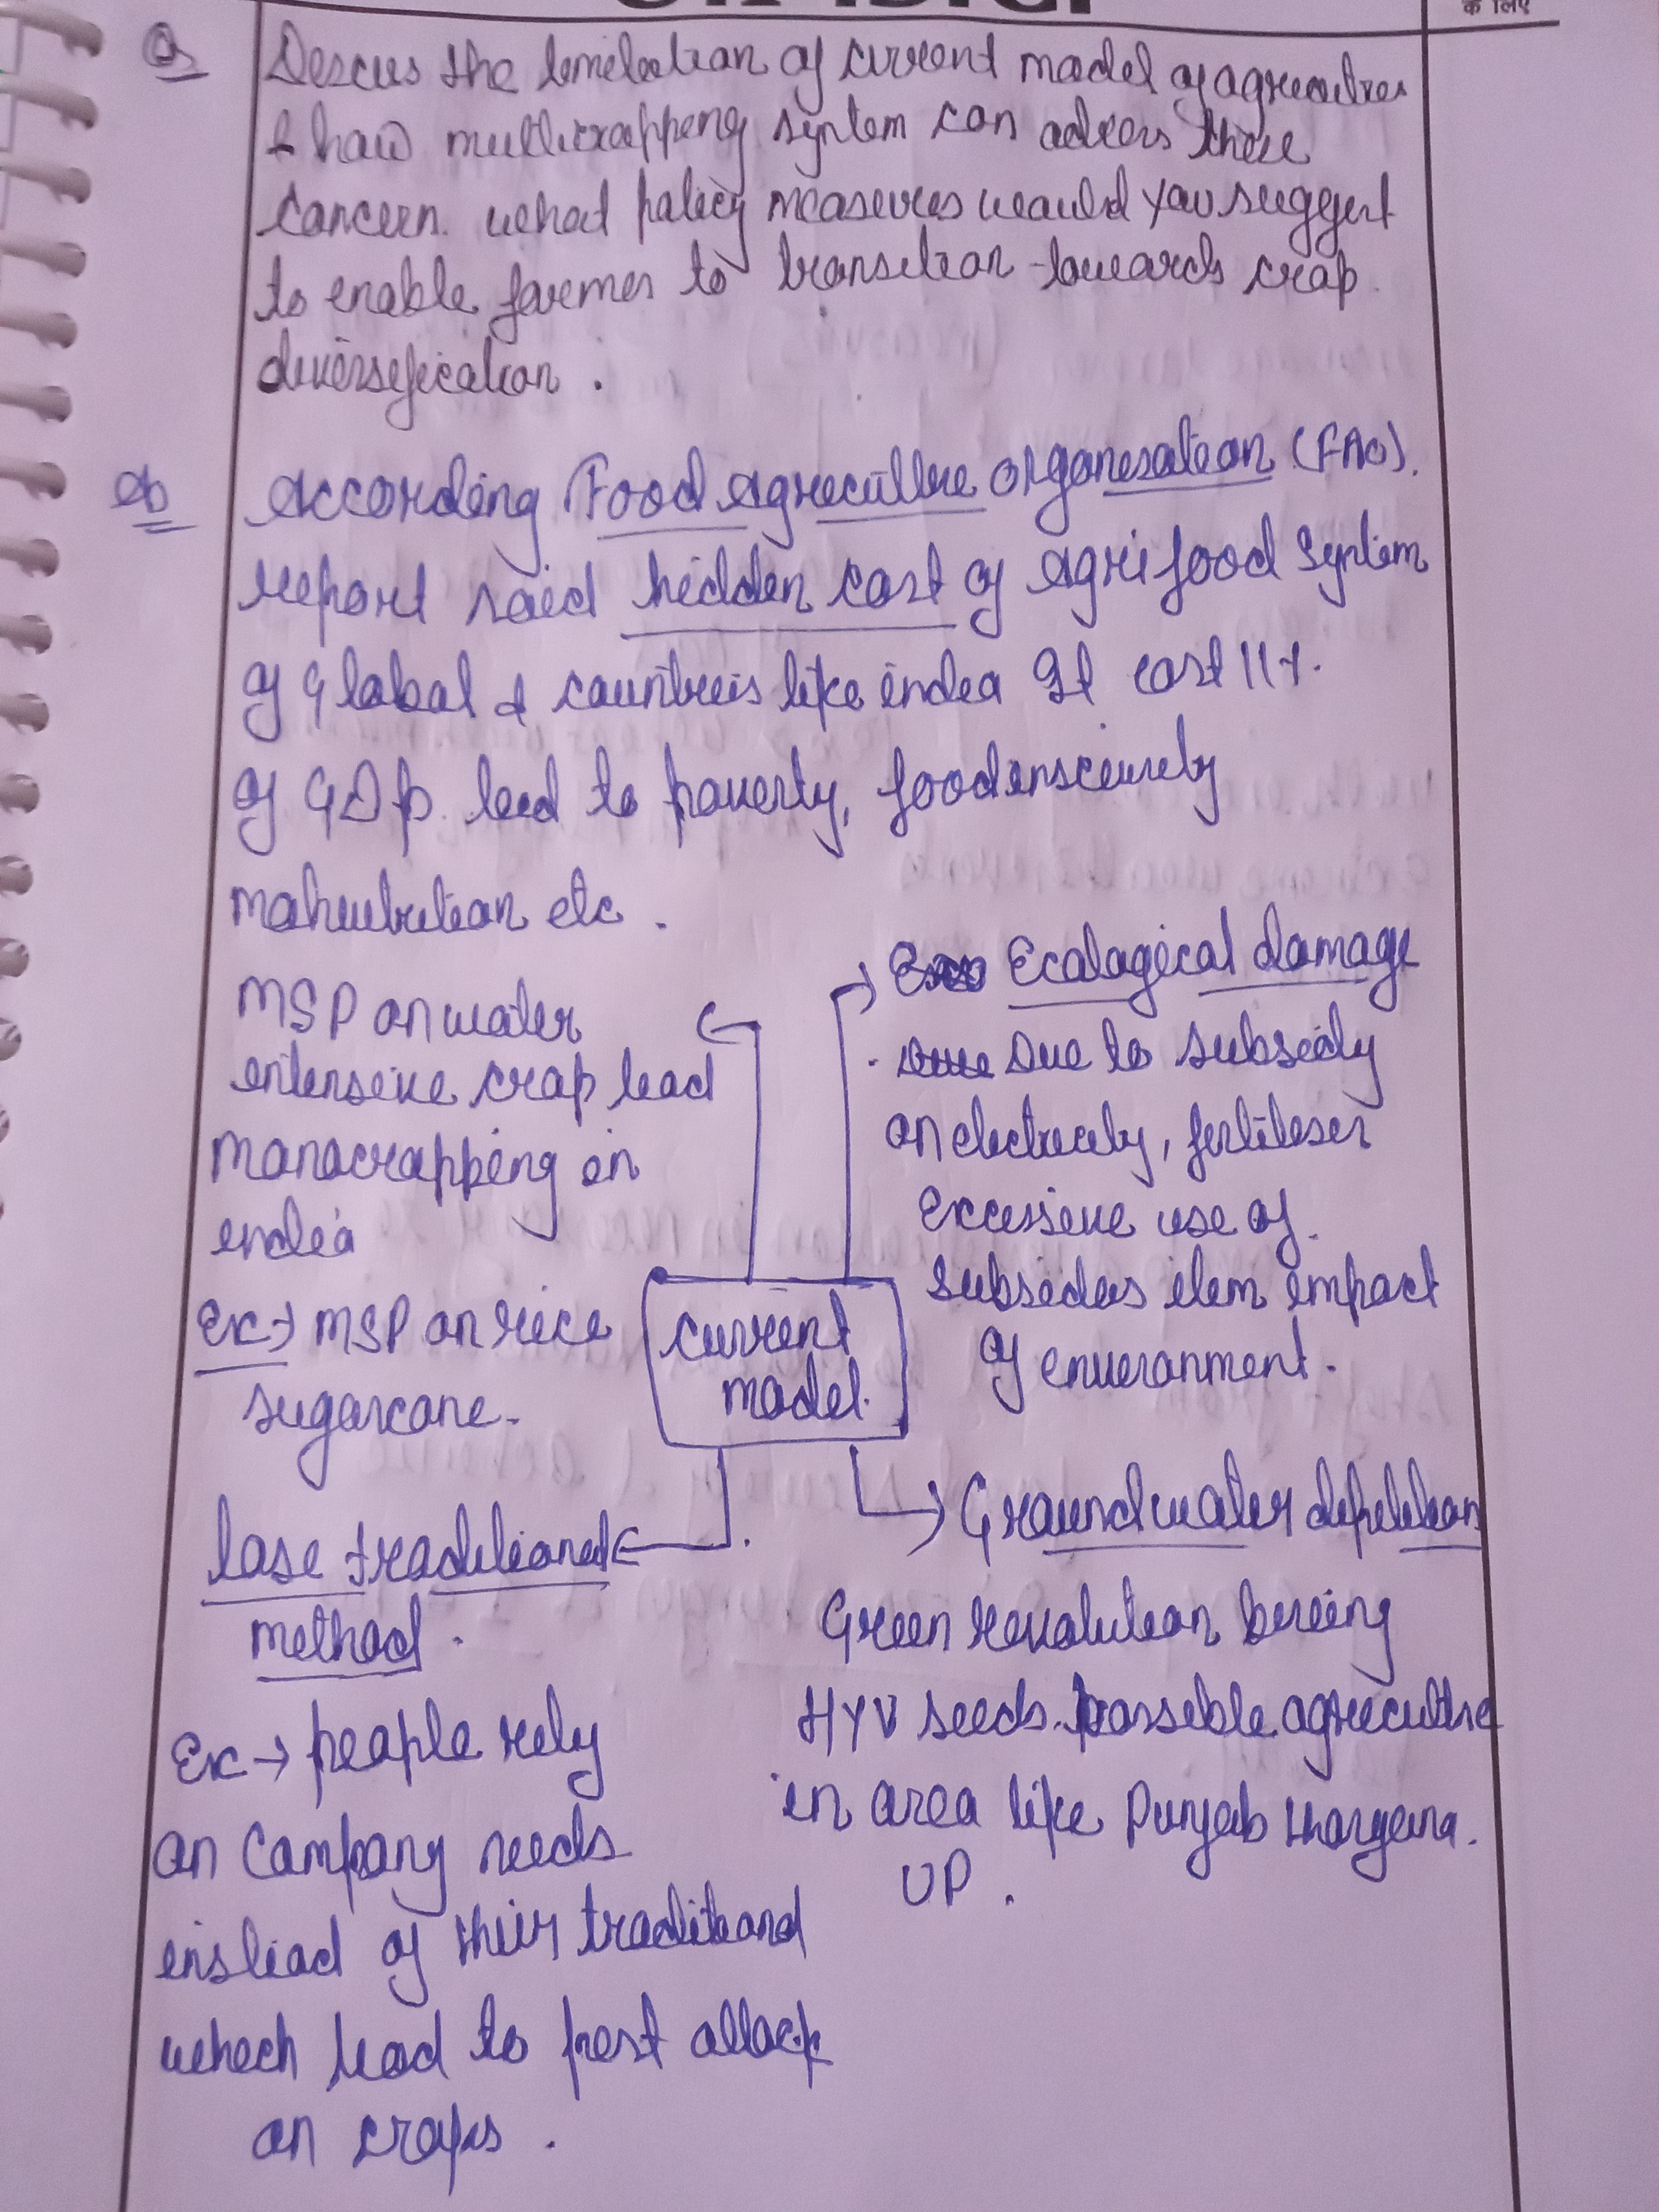 के लिए
Q
Descus the limitation of current model of agriculture
& how multicropping system can adress these
concern. what policy measures would you suggest
to enable farmer to transition towards crop
diversification .
According Food Agriculture organisation (FAO).
report said hidden cost of Agrifood System
of Global & countries like india It cost 11%.
of GDP lead to poverty, food
malnutrition etc .
MSP on water
intensive crop lead
monocropping in
india
Ex → MSP on rice
sugarcane.
Ecological damage
Due to subsidy
on electricity, fertiliser
Excessive use of
subsidies item impact
of environment.
Current
model.
lose traditional
method .
Ex → people rely
on company seeds
instead of their
which lead to pest attack
on crops .
Groundwater depletion
Green revolution bring
HYV seeds. possible agriculture
in area like Punjab Haryana.
UP .